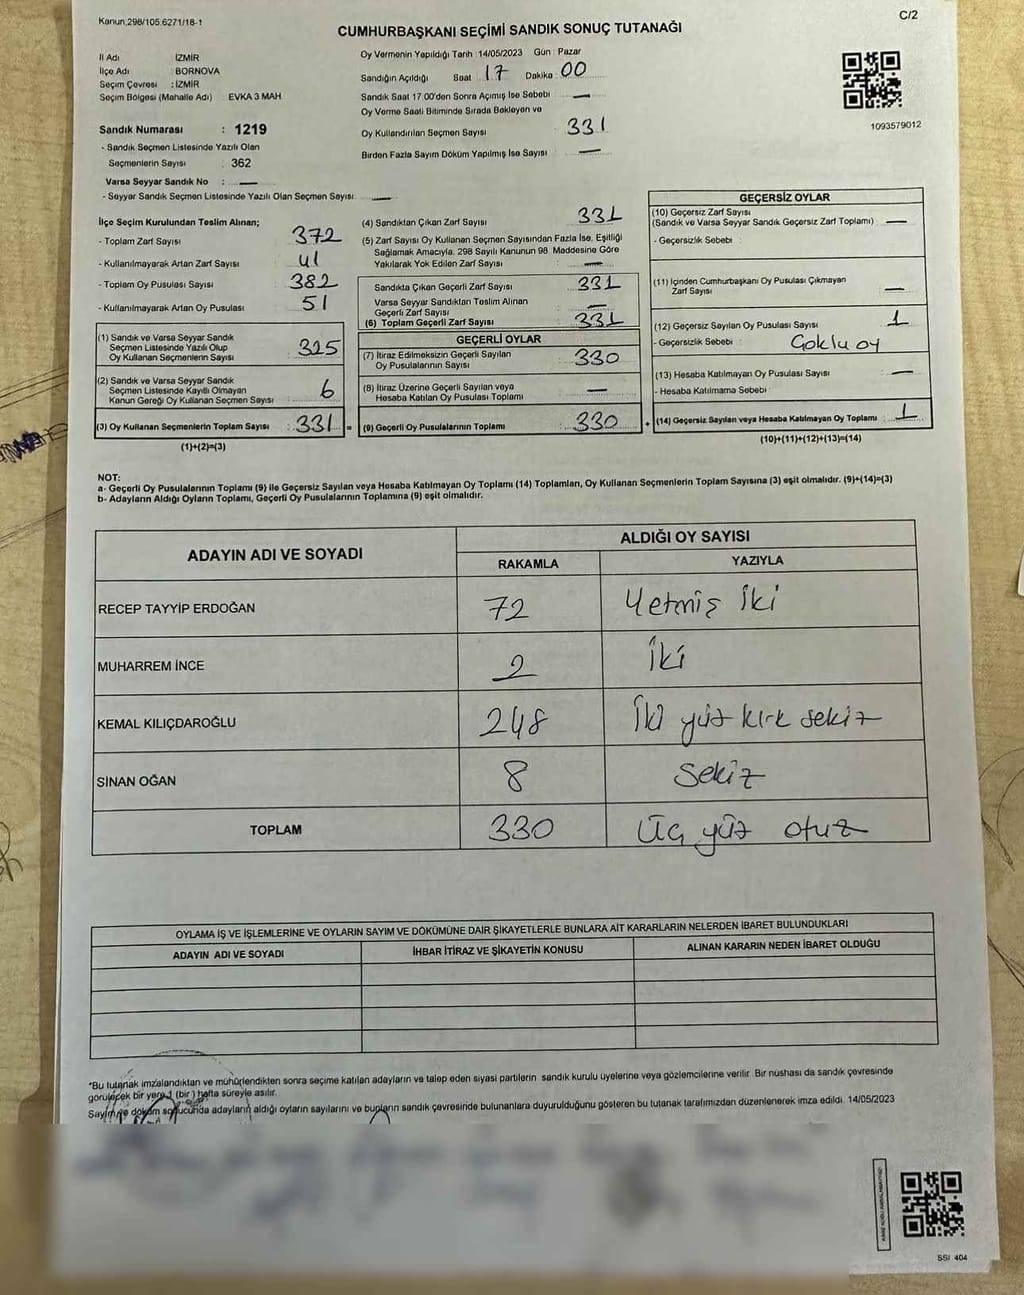 Kanun,298/105.6271/18-1
C/2
CUMHURBAŞKANI SEÇİMİ SANDIK SONUÇ TUTANAĞI
İl Adı İZMİR
İlçe Adı BORNOVA
Seçim Çevresi : İZMİR
Seçim Bölgesi (Mahalle Adı) EVKA 3 MAH.
Sandık Numarası : 1219
- Sandık Seçmen Listesinde Yazılı Olan
Seçmenlerin Sayısı 362
Varsa Seyyar Sandık No : —
- Seyyar Sandık Seçmen Listesinde Yazılı Olan Seçmen Sayısı: —
Oy Vermenin Yapıldığı Tarih : 14/05/2023 Gün : Pazar
Sandığın Açıldığı Saat 17 Dakika : 00
Sandık Saat 17:00'den Sonra Açımış İse Sebebi —
Oy Verme Saati Bitiminde Sırada Bekleyen ve
Oy Kullandırılan Seçmen Sayısı 331
Birden Fazla Sayım Döküm Yapılmış İse Sayısı —
1093579012
İlçe Seçim Kurulundan Teslim Alınan;
- Toplam Zarf Sayısı 372
- Kullanılmayarak Artan Zarf Sayısı 41
- Toplam Oy Pusulası Sayısı 382
- Kullanılmayarak Artan Oy Pusulası 51
(1) Sandık ve Varsa Seyyar Sandık
Seçmen Listesinde Yazılı Olup
Oy Kullanan Seçmenlerin Sayısı 325
(2) Sandık ve Varsa Seyyar Sandık
Seçmen Listesinde Kayıtlı Olmayan
Kanun Gereği Oy Kullanan Seçmen Sayısı 6
(3) Oy Kullanan Seçmenlerin Toplam Sayısı 331 =
(1)+(2)=(3)
(4) Sandıktan Çıkan Zarf Sayısı 331
(5) Zarf Sayısı Oy Kullanan Seçmen Sayısından Fazla İse, Eşitliği
Sağlamak Amacıyla, 298 Sayılı Kanunun 98 Maddesine Göre
Yakılarak Yok Edilen Zarf Sayısı —
Sandıkta Çıkan Geçerli Zarf Sayısı 331
Varsa Seyyar Sandıktan Teslim Alınan
Geçerli Zarf Sayısı —
(6) Toplam Geçerli Zarf Sayısı 331
GEÇERLİ OYLAR
(7) İtiraz Edilmeksizin Geçerli Sayılan
Oy Pusulalarının Sayısı 330
(8) İtiraz Üzerine Geçerli Sayılan veya
Hesaba Katılan Oy Pusulası Toplamı —
(9) Geçerli Oy Pusulalarının Toplamı 330 +
GEÇERSİZ OYLAR
(10) Geçersiz Zarf Sayısı
(Sandık ve Varsa Seyyar Sandık Geçersiz Zarf Toplamı) —
- Geçersizlik Sebebi :
(11) İçinden Cumhurbaşkanı Oy Pusulası Çıkmayan
Zarf Sayısı —
(12) Geçersiz Sayılan Oy Pusulası Sayısı 1
- Geçersizlik Sebebi : Çoklu oy
(13) Hesaba Katılmayan Oy Pusulası Sayısı —
- Hesaba Katılmama Sebebi :
(14) Geçersiz Sayılan veya Hesaba Katılmayan Oy Toplamı 1
(10)+(11)+(12)+(13)=(14)
NOT:
a- Geçerli Oy Pusulalarının Toplamı (9) ile Geçersiz Sayılan veya Hesaba Katılmayan Oy Toplamı (14) Toplamları, Oy Kullanan Seçmenlerin Toplam Sayısına (3) eşit olmalıdır. (9)+(14)=(3)
b- Adayların Aldığı Oyların Toplamı, Geçerli Oy Pusulalarının Toplamına (9) eşit olmalıdır.
ADAYIN ADI VE SOYADI ALDIĞI OY SAYISI
RAKAMLA YAZIYLA
RECEP TAYYİP ERDOĞAN 72 Yetmiş iki
MUHARREM İNCE 2 İki
KEMAL KILIÇDAROĞLU 248 İki yüz kırk sekiz
SİNAN OĞAN 8 Sekiz
TOPLAM 330 Üç yüz otuz
OYLAMA İŞ VE İŞLEMLERİNE VE OYLARIN SAYIM VE DÖKÜMÜNE DAİR ŞİKAYETLERLE BUNLARA AİT KARARLARIN NELERDEN İBARET BULUNDUKLARI
ADAYIN ADI VE SOYADI İHBAR İTİRAZ VE ŞİKAYETİN KONUSU ALINAN KARARIN NEDEN İBARET OLDUĞU
*Bu tutanak imzalandıktan ve mühürlendikten sonra seçime katılan adayların ve talep eden siyasi partilerin sandık kurulu üyelerine veya gözlemcilerine verilir. Bir nüshası da sandık çevresinde
görülecek bir yere 1 (bir) hafta süreyle asılır.
Sayım ve döküm sonucunda adayların aldığı oyların sayılarını ve bunların sandık çevresinde bulunanlara duyurulduğunu gösteren bu tutanak tarafımızdan düzenlenerek imza edildi. 14/05/2023
SSI 404